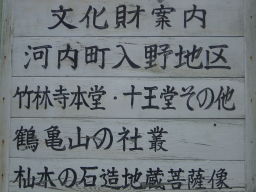 文化財案内
河内町入野地区
竹林寺本堂・十王堂その他
鶴亀山の社叢
杣木の石造地蔵菩薩像